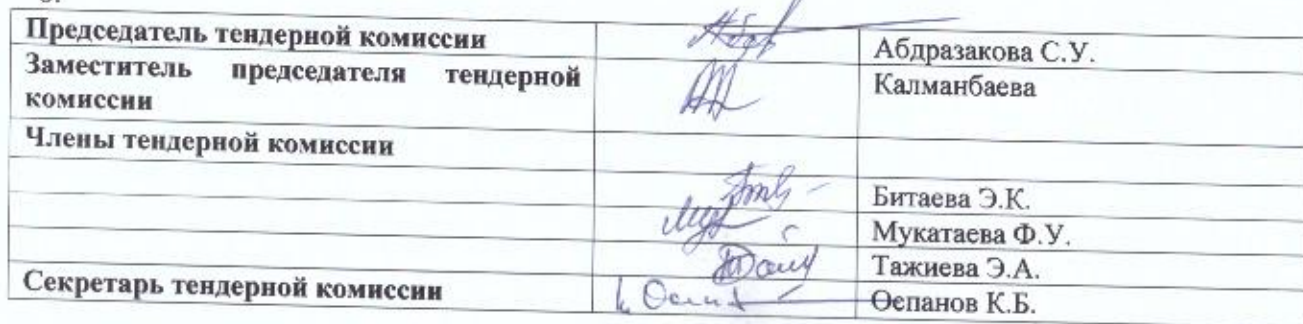 Председатель тендерной комиссии Абдразакова С.У.
Заместитель председателя тендерной
комиссии Калманбаева
Члены тендерной комиссии
Битаева Э.К.
Мукатаева Ф.У.
Тажиева Э.А.
Секретарь тендерной комиссии Оспанов К.Б.